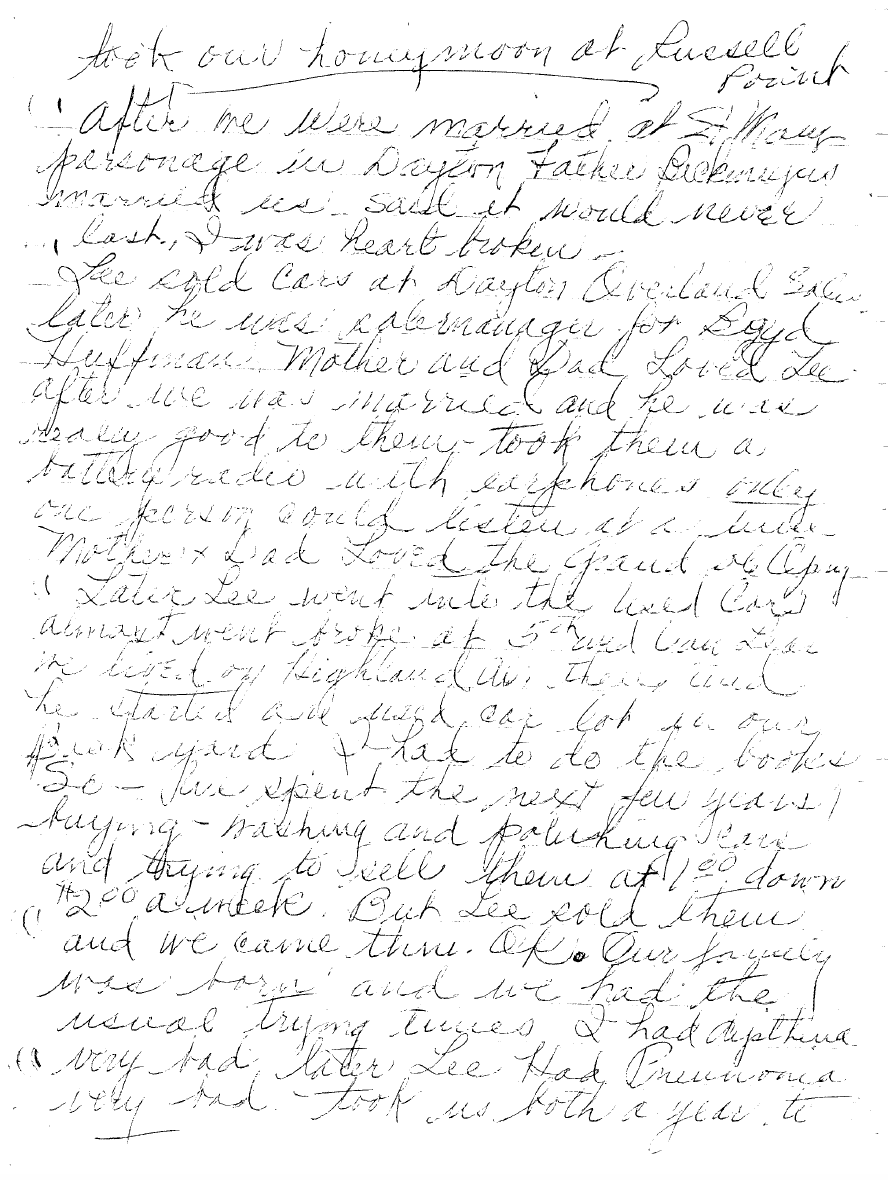 took our honeymoon at Russell
Point
After we were married at St Mary
parsonage in Dayton Father
married us said it would never
last, I was heart broken -
Lee sold Cars at Dayton Overland Sales
later he was salesmanager for Boyd
Huffman Mother and Dad Loved Lee
after we was married and he was
really good to them - took them a
battery radio with earphones only
one person could listen at a time
Mother & Dad Loved the Grand ole Opry
Later Lee went into the Used Cars
almost went broke at 5th and
we lived on Highland Av. then and
he started a used car lot in our
back yard I had to do the books
So - we spent the next few years
buying - washing and polishing cars
and trying to sell them at 1 00 down
$2 00 a week. But Lee sold them
and we came thru. OK. Our family
was born and we had the
usual trying times I had
very bad later Lee Had Pneumonia
very bad - took us both a year to